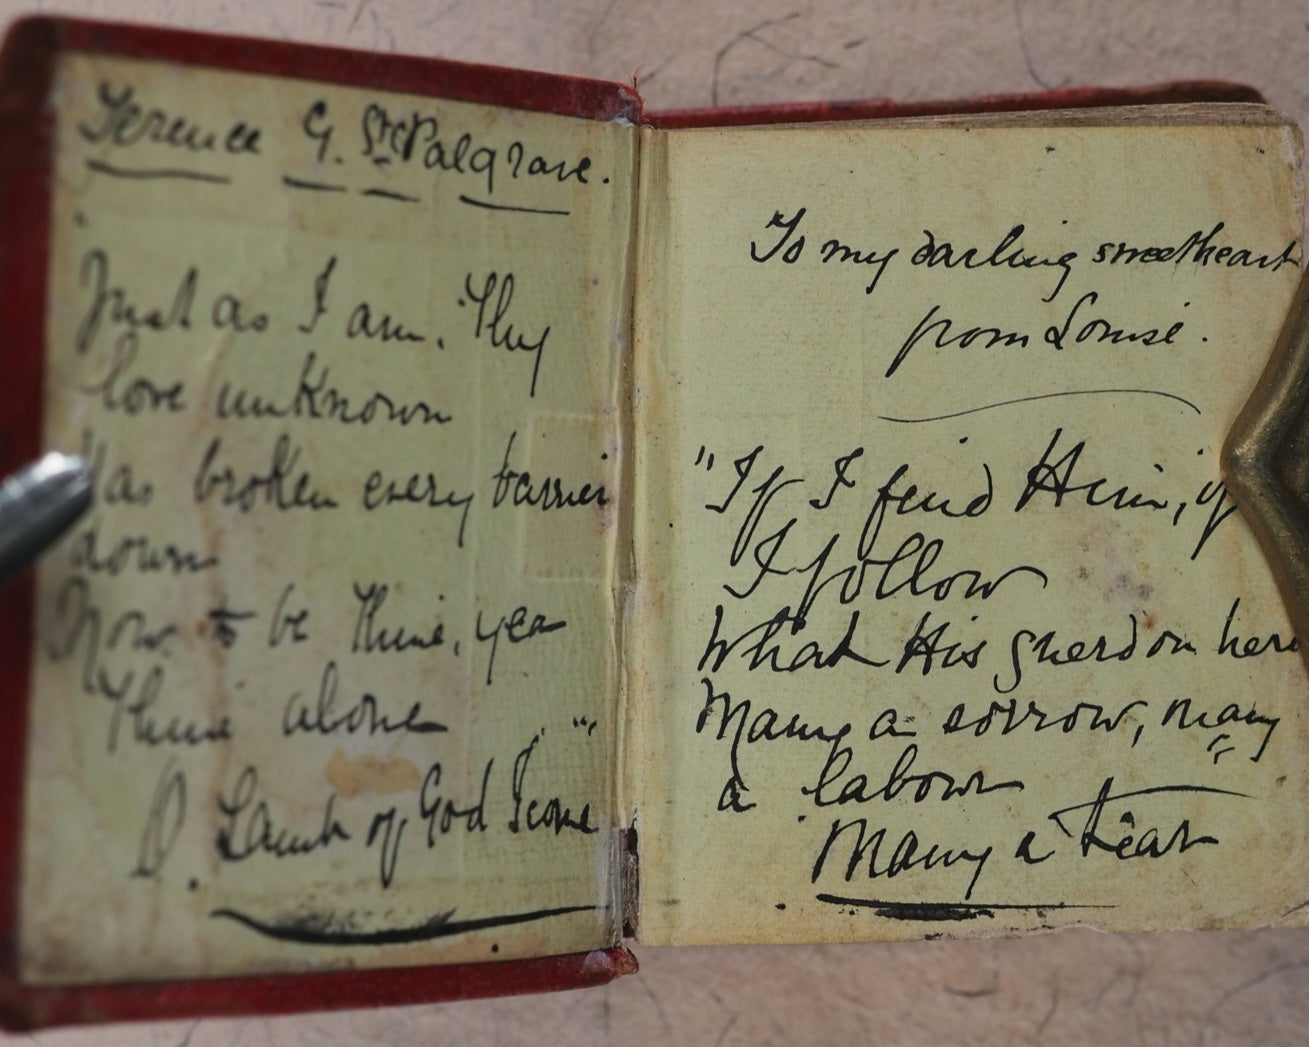 Terence G. St C Palgrave.
Just as I am. Thy
love unKnown
Has broken every barrier
down
Now to be Thine, yea
Thine alone
O. Lamb of God I come
To my darling sweetheart
from Louise.
"If I find Him, if
I follow
What His guerdon here
Many a sorrow, many
a labour
Many a tear"